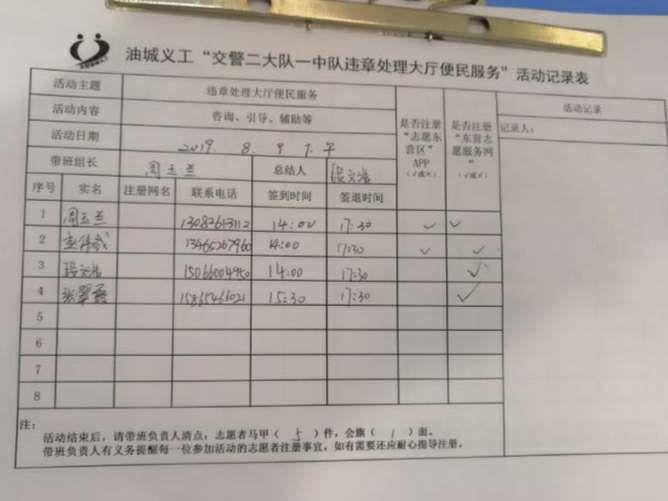 油城义工“交警二大队一中队违章处理大厅便民服务”活动记录表
活动主题 违章处理大厅便民服务
活动内容 咨询、引导、辅助等
活动日期 2019. 8. 9 下午
带班组长 周玉兰 总结人
是否注册“志愿东营区”APP(√或×)
是否注册“东营志愿服务网”(√或×)
活动记录
记录人:
序号 实名 注册网名 联系电话 签到时间 签退时间
1 周玉兰 14:00 17:30 ✓ ✓
2 13465267960 14:00 17:30 ✓ ✓
3 15066004950 14:00 17:30 ✓
4 张翠霞 15865466021 15:30 17:30 ✓
5
6
7
8
注:
活动结束后,请带班负责人清点:志愿者马甲( 5 )件,会旗( 1 )面。
带班负责人有义务提醒每一位参加活动的志愿者注册事宜,如有需要还应耐心指导注册。